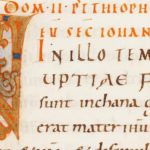 DOM·II·P̄ THEOPH
EV SEC IOHAN
IN ILLO TEM
UPTIAE F
sunt inchana g
erat mater ihu